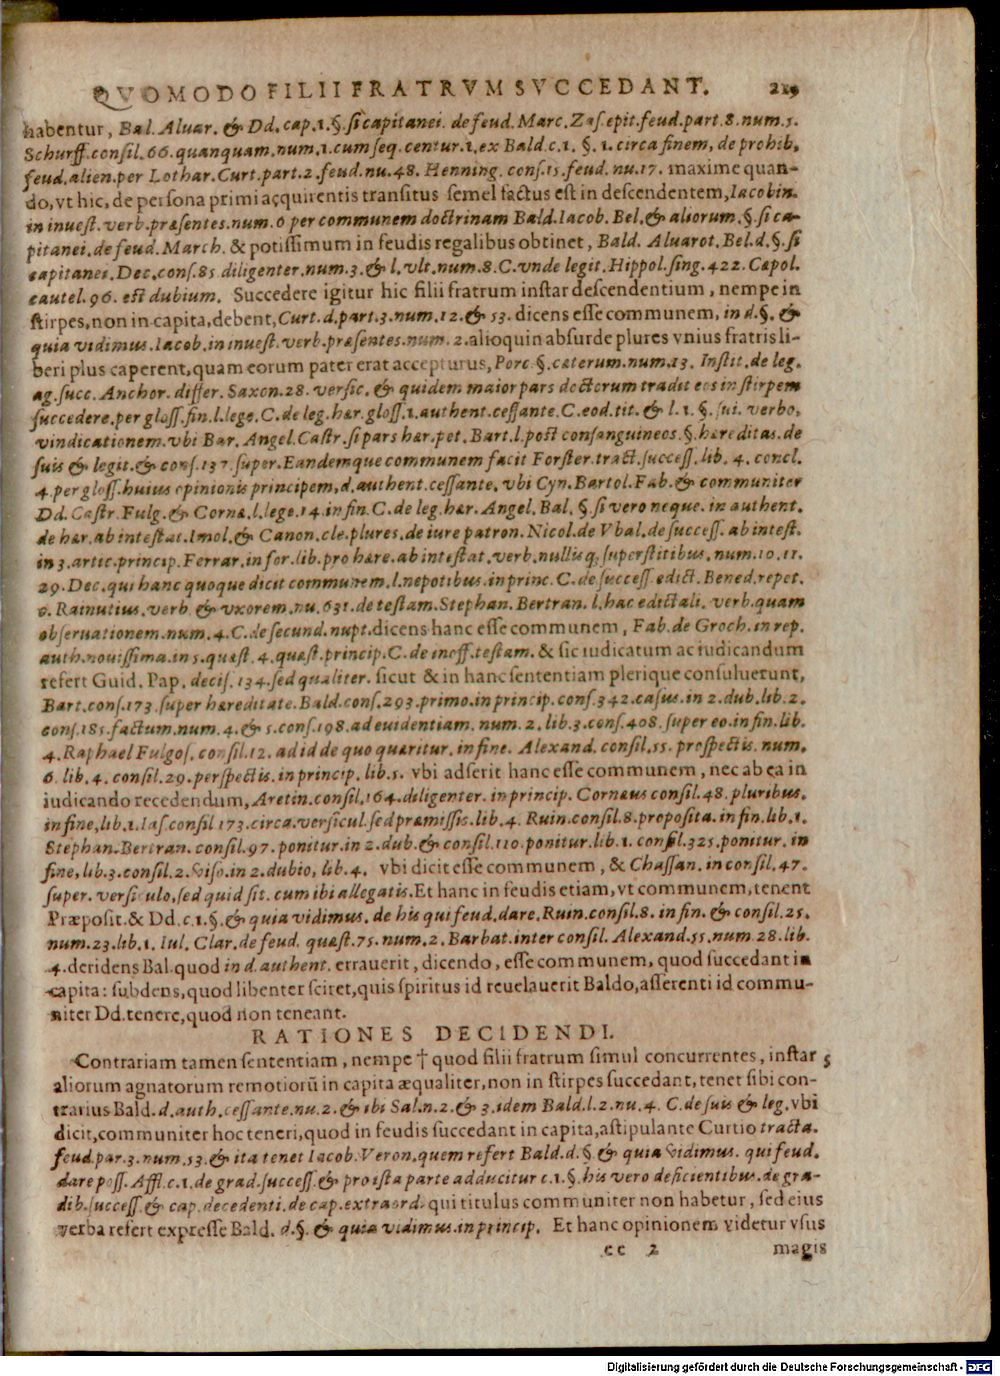 QVOMODO FILII FRATRVM SVCCEDANT. 219
habentur, Bal. Aluar. & Dd. cap. 1. §. si capitanei. de feud. Marc. Zas. epit. feud. part. 8. num. 5.
Schurff. consil. 66. quanquam. num. 1. cum seq. centur. 1. ex Bald. c. 1. §. 1. circa finem, de prohib.
feud. alien. per Lothar. Curt. part. 2. feud. nu. 48. Henning. cons. 15. feud. nu. 17. maxime quan-
do, vt hic, de persona primi acquirentis transitus semel factus est in descendentem, Iacobin.
in inuest. verb. præsentes. num. 6 per communem doctrinam Bald. Iacob. Bel. & aliorum. §. si ca-
pitanei. de feud. March. & potissimum in feudis regalibus obtinet, Bald. Aluarot. Bel. d. §. si
capitanei. Dec. cons. 85. diligenter. num. 3. & l. vlt. num. 8. C. vnde legit. Hippol. sing. 422. Cæpol.
cautel. 96. est dubium. Succedere igitur hic filii fratrum instar descendentium, nempe in
stirpes, non in capita, debent, Curt. d. part. 3. num. 12. & 53. dicens esse communem, in d. §. &
quia vidimus. Iacob. in inuest. verb. præsentes. num. 2. alioquin absurde plures vnius fratris li-
beri plus caperent, quam eorum pater erat accepturus, Porc. §. cæterum. num. 13. Instit. de leg.
ag. succ. Anchor. differ. Saxon. 28. versic. & quidem maior pars doctorum tradit eos in stirpem
succedere. per gloss. fin. l. lege. C. de leg. hær. gloss. 1. authent. cessante. C. eod. tit. & l. 1. §. sui. verbo,
vindicationem. vbi Bar. Angel. Castr. si pars hær. pet. Bart. l. post consanguineos. §. hæreditas. de
suis & legit. & cons. 137. super. Eandemque communem facit Forster. tract. success. lib. 4. concl.
4. per gloss. huius opinionis principem, d. authent. cessante. vbi Cyn. Bartol. Fab. & communiter
Dd. Castr. Fulg. & Corne. l. lege. 14. in fin. C. de leg. hær. Angel. Bal. §. si vero neque. in authent.
de hær. ab intestat. Imol. & Canon. cle. plures. de iure patron. Nicol. de Vbal. de success. ab intest.
in 3. artic. princip. Ferrar. in for. lib. pro hære. ab intestat. verb. nullisq; superstitibus. num. 10. 11.
29. Dec. qui hanc quoque dicit communem. l. nepotibus. in princ. C. de success. edict. Bened. repet.
c. Rainutius. verb. & vxorem. nu. 631. de testam. Stephan. Bertran. l. hac edictali. verb. quam
obseruationem. num. 4. C. de secund. nupt. dicens hanc esse communem, Fab. de Groch. in rep.
auth. nouissima. in 5. quæst. 4. quæst. princip. C. de inoff. testam. & sic iudicatum ac iudicandum
refert Guid. Pap. decis. 134. sed qualiter. sicut & in hanc sententiam plerique consuluerunt,
Bart. cons. 173. super hæreditate. Bald. cons. 293. primo. in princip. cons. 342. casus. in 2. dub. lib. 2.
cons. 185. factum. num. 4. & 5. cons. 198. ad euidentiam. num. 2. lib. 3. cons. 408. super eo. in fin. lib.
4. Raphael Fulgos. consil. 12. ad id de quo quæritur. in fine. Alexand. consil. 55. prospectis. num.
6. lib. 4. consil. 29. perspectis. in princip. lib. 5. vbi adserit hanc esse communem, nec ab ea in
iudicando recedendum, Aretin. consil. 164. diligenter. in princip. Corneus consil. 48. pluribus.
in fine, lib. 1. Ias. consil 173. circa. versicul. sed præmissis. lib. 4. Ruin. consil. 8. proposita. in fin. lib. 1.
Stephan. Bertran. consil. 97. ponitur. in 2. dub. & consil. 110. ponitur. lib. 1. consil. 325. ponitur. in
fine, lib. 3. consil. 2. viso. in 2. dubio, lib. 4. vbi dicit esse communem, & Chassan. in consil. 47.
super. versiculo, sed quid sit. cum ibi allegatis. Et hanc in feudis etiam, vt communem, tenent
Præposit. & Dd. c. 1. §. & quia vidimus. de his qui feud. dare. Ruin. consil. 8. in fin. & consil. 25.
num. 23. lib. 1. Iul. Clar. de feud. quæst. 75. num. 2. Barbat. inter consil. Alexand. 55. num. 28. lib.
4. deridens Bal. quod in d. authent. errauerit, dicendo, esse communem, quod succedant in
capita: subdens, quod libenter sciret, quis spiritus id reuelauerit Baldo, asserenti id commu-
niter Dd. tenere, quod non teneant.
RATIONES DECIDENDI.
Contrariam tamen sententiam, nempe † quod filii fratrum simul concurrentes, instar 5
aliorum agnatorum remotiorū in capita æqualiter, non in stirpes succedant, tenet sibi con-
trarius Bald. d. auth. cessante. nu. 2. & ibi Sal. n. 2. & 3. idem Bald. l. 2. nu. 4. C. de suis & leg. vbi
dicit, communiter hoc teneri, quod in feudis succedant in capita, astipulante Curtio tracta.
feud. par. 3. num. 53. & ita tenet Iacob. Veron. quem refert Bald. d. §. & quia vidimus. qui feud.
dare poss. Affl. c. 1. de grad. success. & pro ista parte adducitur c. 1. §. his vero deficientibus. de gra-
dib. success. & cap. decedenti. de cap. extraord. qui titulus communiter non habetur, sed eius
verba refert expresse Bald. d. §. & quia vidimus. in princip. Et hanc opinionem videtur vsus
cc 2 magis
Digitalisierung gefördert durch die Deutsche Forschungsgemeinschaft - DFG